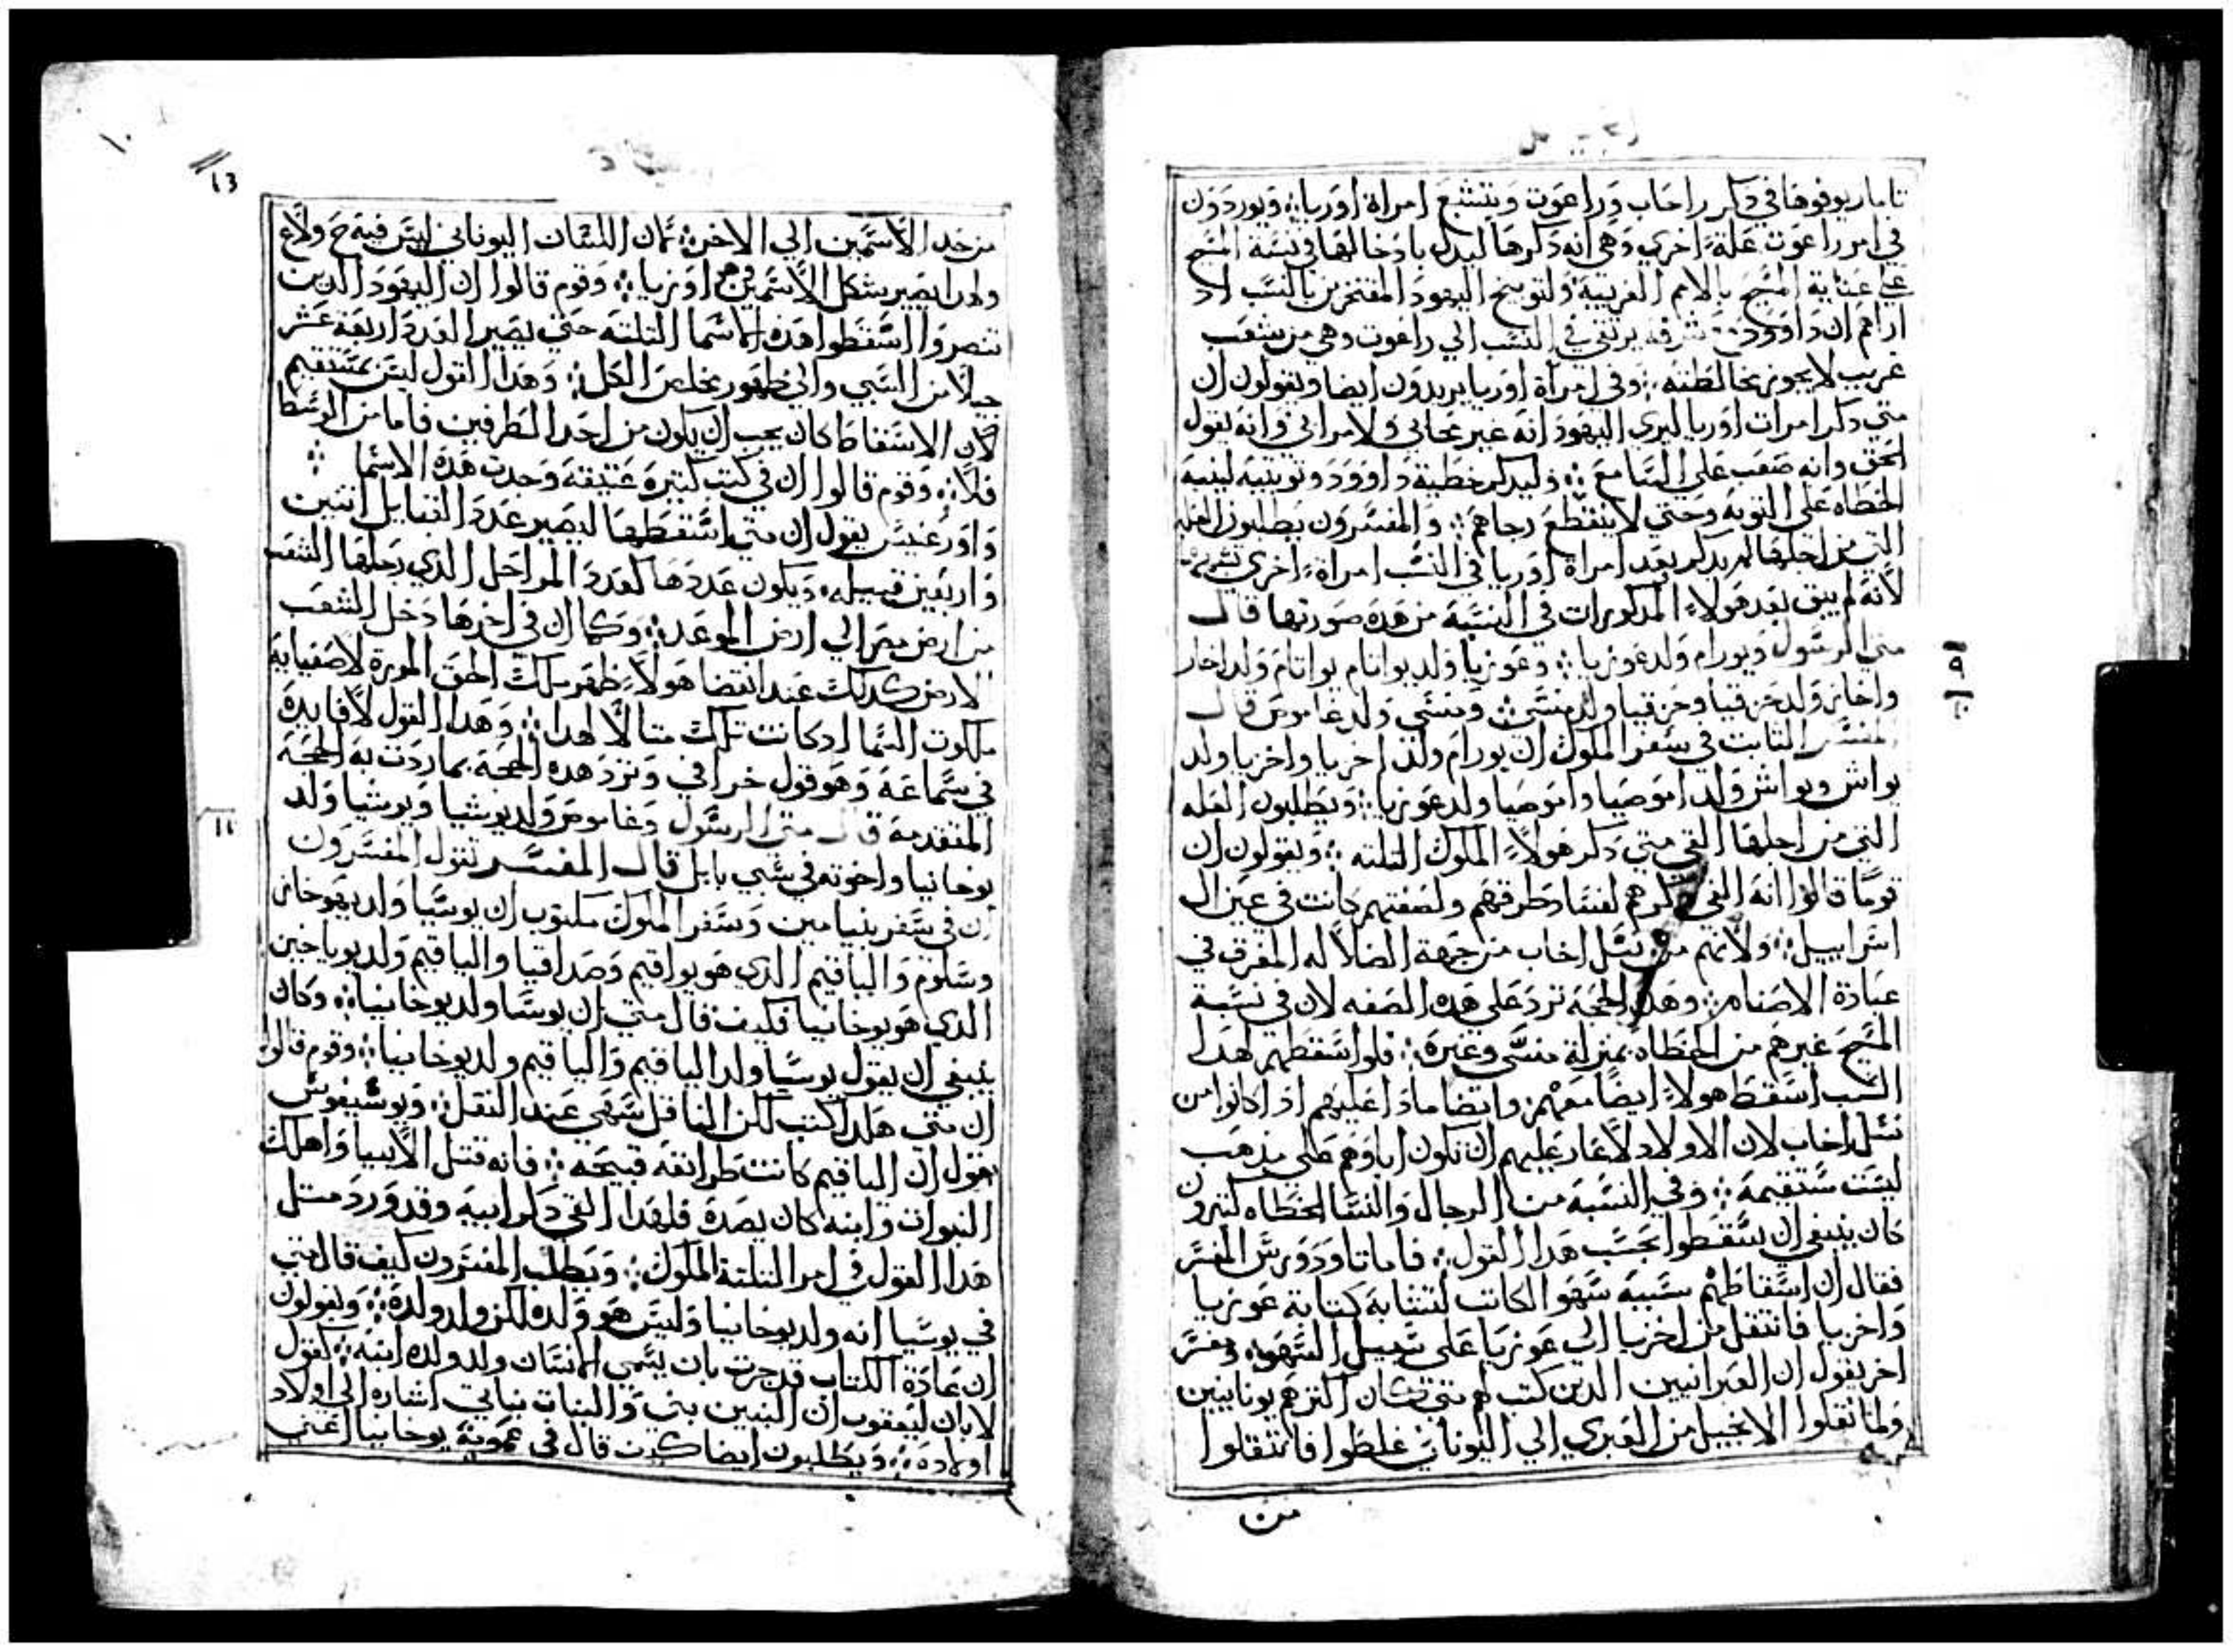 تامار يوفوها في دكر راحاب وراعوت وبتشبع امراة اوريا ؞ ويوردون
في امر راعوت علة اخري وهي انه دكرها ليدل بادخالها في نسبة المسيح
علي عناية المسيح بالامم الغريبة ولتوبيخ اليهود المفتخرين بالنسب اد
اراهم ان داوود يرتقي في النسب الي راعوت وهي من شعب
غريب لا يجوز مخالطته ؞ وفي امراة اوريا يريدون ايضا ويقولون ان
متي دكر امرات اوريا ليري اليهود انه غير محابي ولا مرائي وانه يقول
الحق وانه صعب علي السامع ؞ وليدكر خطية داوود وتوبته لينبه
الخطاه علي التوبه وحتي لا ينقطع رجاهم ؞ والمفسرون يطلبون العله
التي من اجلها لم يدكر بعد امراة اوريا في النسب امراة اخري
لانه لم يبق بعد هولاء المدكورات في النسبة من هده صورتها قال
متي الرسول ويورام ولد عوزيا ؞ وعوزيا ولد يواتام يواتام ولد احاز
واحاز ولد حزقيا وحزقيا ولد منشي ومنشي ولد غاموص قال
المفسر الثابت في سفر الملوك ان يورام ولد اخزيا واخزيا ولد
يواش ويواش ولد اموصيا واموصيا ولد عوزيا ؞ ويطلبون العله
التي من اجلها القي متي دكر هولاء الملوك التلته ؞ ويقولون ان
قوما قالوا انه القي دكرهم لفساد طرقهم ولصفتهم كانت في عين ال
اسراييل ؞ ولانهم من نسل اخاب من جهة الضلاله المفرق في
عبادة الاصنام ؞ وهده الحجة ترد علي هده الصفه لان في نسبة
المسيح غيرهم من الخطاه بمنزلة منسي وغيره ؞ فلو اسقطهم لهدا
السبب اسقط هولاء ايضا معهم ؞ وايضا مادا عليهم ادا كانوا من
نسل اخاب لان الاولاد لا عار عليهم ان تكون اباوهم علي مدهب
ليست مستقيمة ؞ وفي النسبة من الرجال والنسا الخطاه كتيرون
كان ينبغي ان يسقطوا بحسب هدا القول ؞ فاما تاودورس المفسر
فقال ان اسقاطهم سببه سهو الكاتب لتشابه كتابة عوزيا
واخزيا فانتقل من اخزيا الي عوزيا علي سبيل السهو ؞ ومفسر
اخر يقول ان العبرانيين الدين كتب لهم متي كان اكترهم يونانيين
ولما نقلوا الانجيل من العبري الي اليوناني غلطوا فانتقلوا
من
13
من احد الاسمين الي الاخر ؞ لان اللسان اليوناني ليس فيه ح ولا ع
ولهدا يصير شكل الاسمين هو اوزيا ؞ وقوم قالوا ان اليهود الدين
تنصروا اسقطوا هده الاسما التلته حتي يصير العدد اربعة عشر
جيلا من السبي والي ظهور مخلص الكل ؞ وهدا القول ليس بمستقيم
لان الاسقاط كان يجب ان يكون من احد الطرفين فاما من الوسط
فلا ؞ وقوم قالوا ان في كتب كتيرة عتيقة وجدت هده الاسما ؞
واورغنيس يقول ان متي اسقطها ليصير عدد القبايل اتنين
واربعين قبيله ؞ ويكون عددها كعدد المراحل الدي رحلها الشعب
من ارض مصر الي ارض الموعد ؞ وكما ان في اخرها دخل الشعب
الارض كدلك عند انقضا هولاء ظهر ملك الحق المورة لاصفيايه
ملكوت السما ادكانت تلك متالا لهدا ؞ وهدا القول لا فايدة
في سماعه وهو قول خرافي وترد هده الحجة بما ردت به الحجة
المتقدمة قال متي الرسول وغاموص ولد يوشيا ويوشيا ولد
يوحانيا واخوته في سبي بابل قال المفسر تقول المفسرون
ان في سفر بنيامين وسفر الملوك مكتوب ان يوسيا ولد يهوحاز
وسلوم والياقيم الدي هو يواقيم وصداقيا والياقيم ولد يوياخين
الدي هو يوحانيا فكيف قال متي ان يوسيا ولد يوحانيا ؞ وكان
ينبغي ان يقول يوسيا ولد الياقيم والياقيم ولد يوحانيا ؞ وقوم قالوا
ان متي هكدا كتب لكن الناقل سهي عند النقل ؞ ويوسيفوس
يقول ان الياقيم كانت طرايقه قبيحه ؞ فانه قتل الانبيا واهلك
النبوات وابنه كان بصدة فلهدا القي دكر ابيه وقد ورد متل
هدا القول في امر التلتة الملوك ؞ ويطلب المفسرون كيف قال متي
في يوسيا انه ولد يوحانيا وليس هو ولده لكن ولد ولده ؞ ويقولون
ان عادة الكتاب قد جرت بان يسمي الانسان ولد ولده ابنه ؞ كقول
لابان ليعقوب ان البنين بني والبنات بناتي اشاره الي اولاد
اولاده ؞ ويطلبون ايضا كيف قال في عمومة يوحانيا اعني